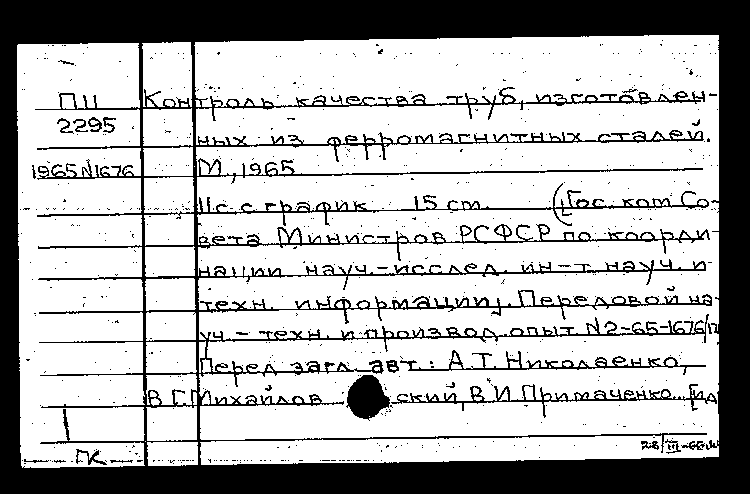 П11 Контроль качества труб, изготовлен-
2295
ных из ферромагнитных сталей.
1965 N1676 М., 1965
11с. с график. 15 см. ([Гос. ком. Со-
вета Министров РСФСР по коорди-
нации науч.-исслед. ин-т науч. и
техн. информации]. Передовой на-
уч.-техн. и производ. опыт N2-65-1676/
Перед загл. авт.: А.Т. Николаенко,
В.Г. Михайлов ский, В.И. Примаченко. [и др
ПК